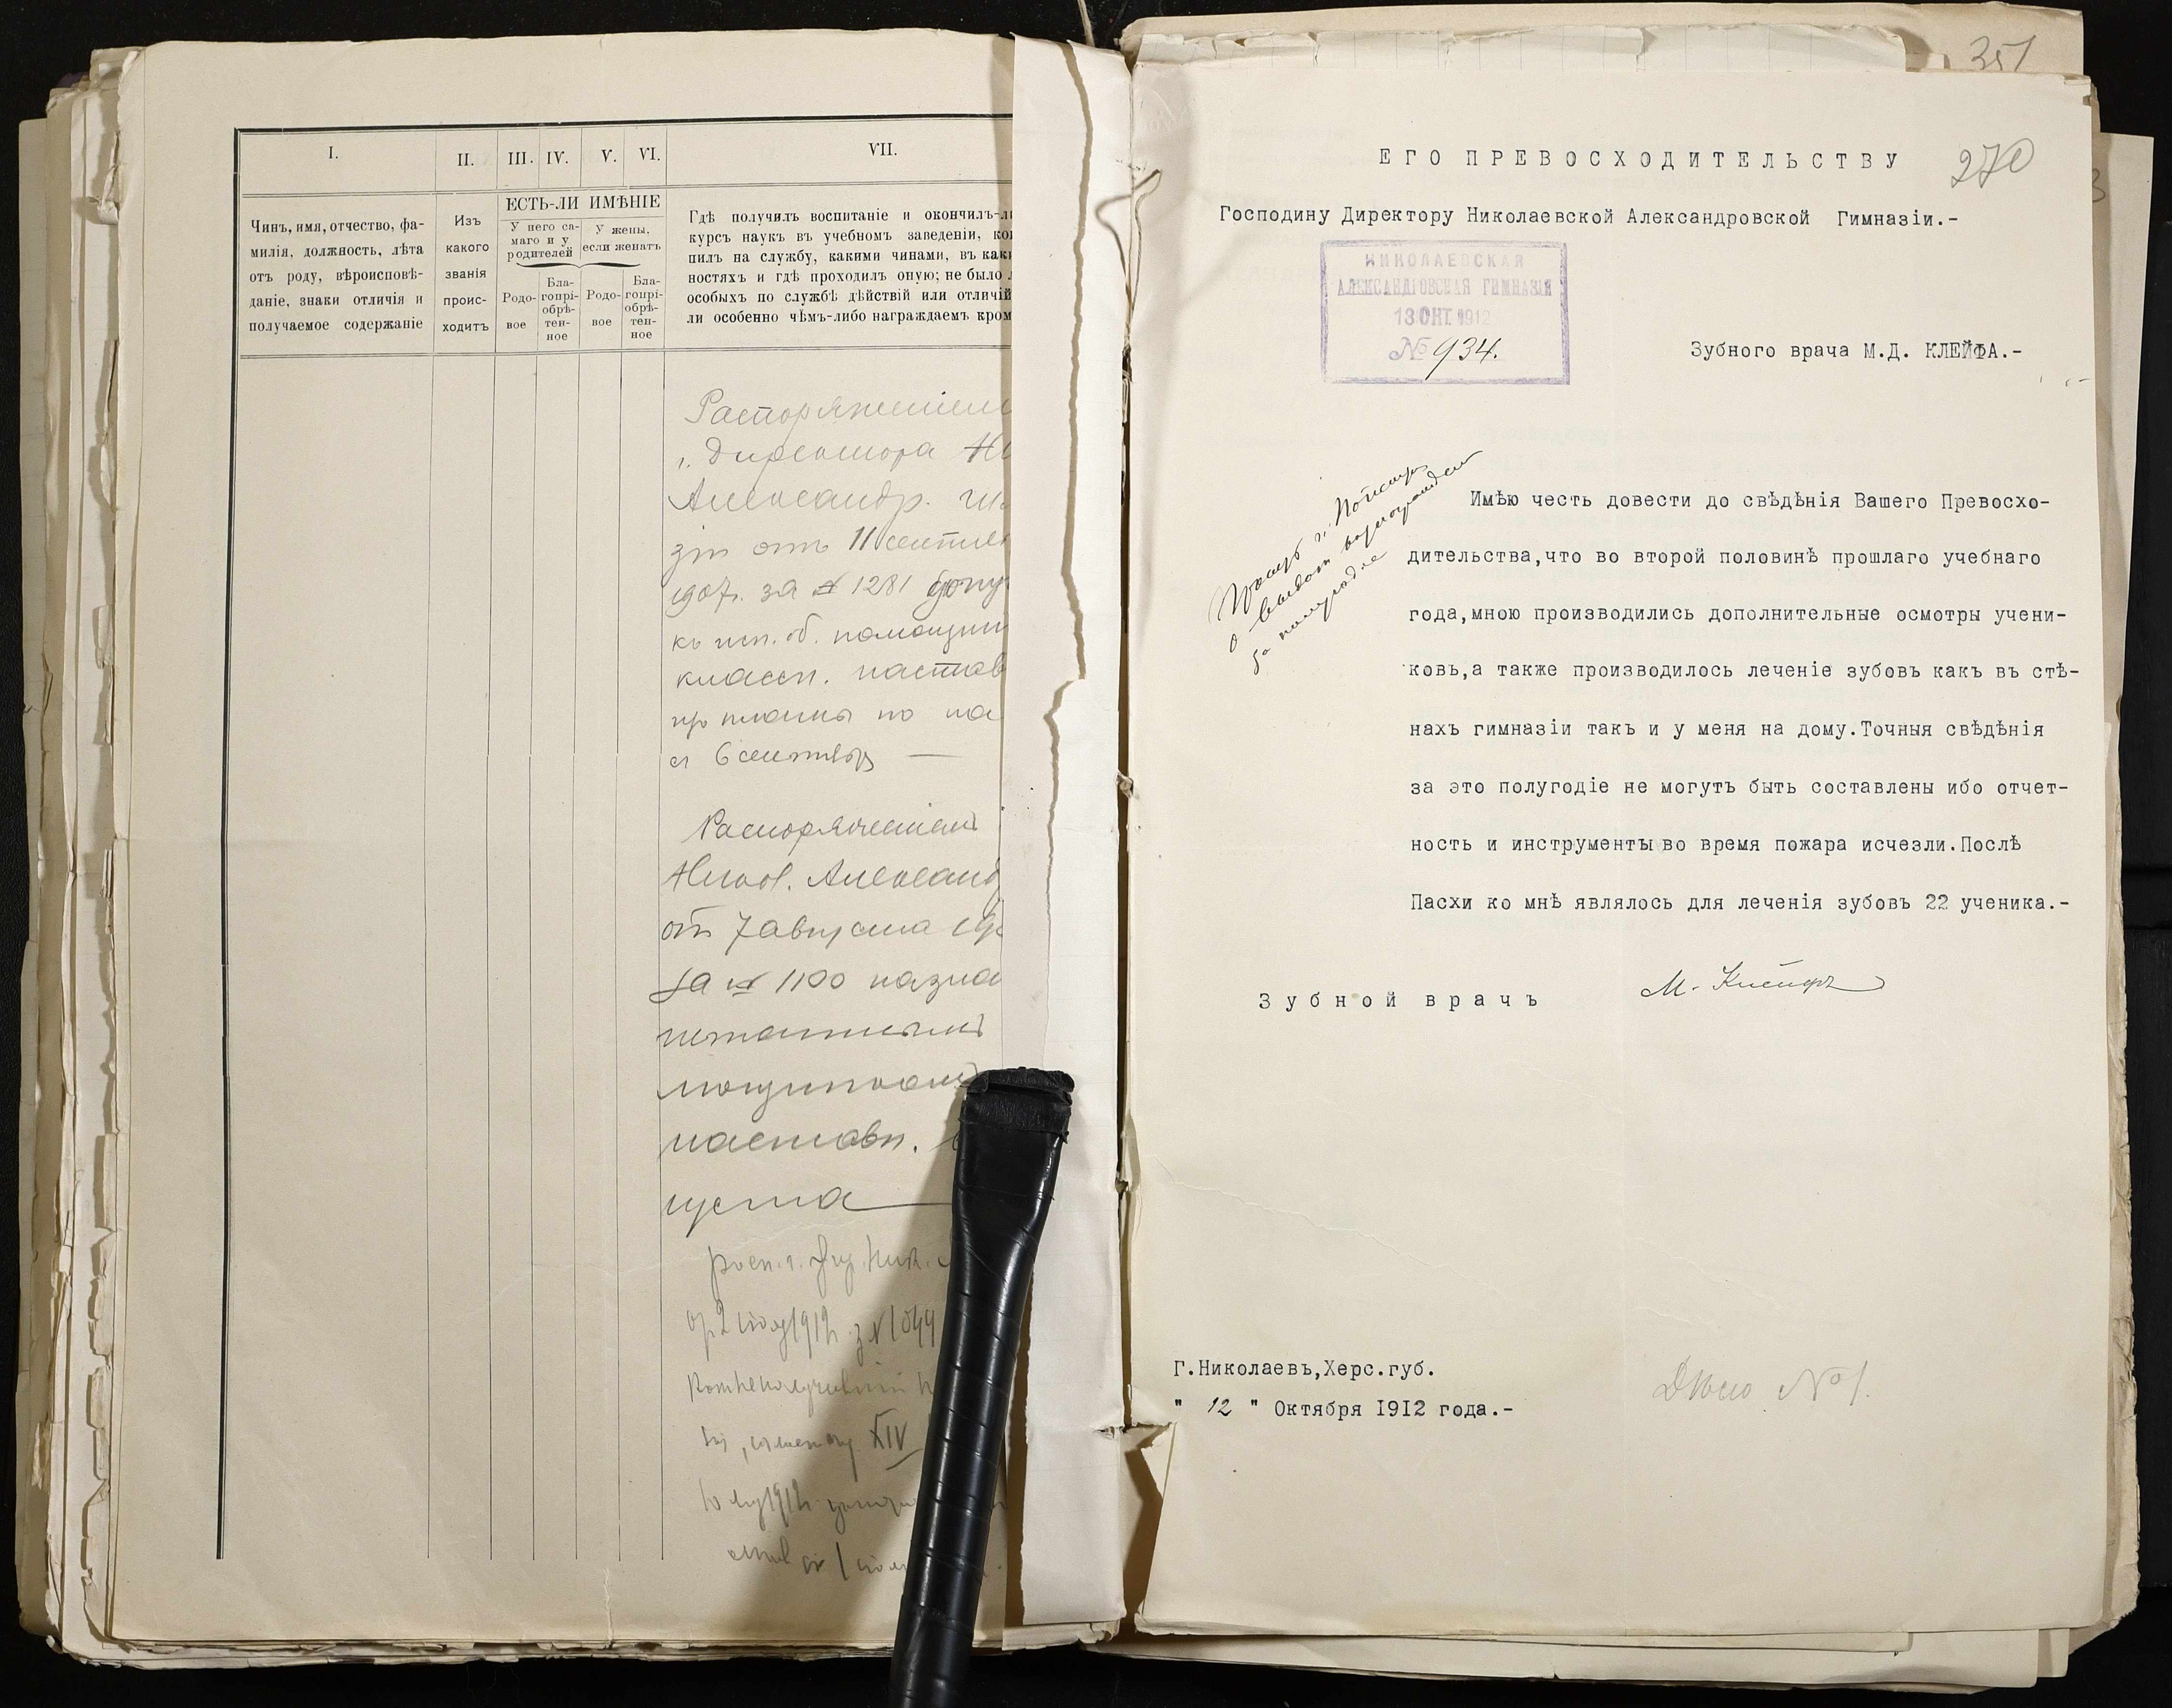 I.
II.
III.
IV.
V.
VI.
VII.
ЕСТЬ-ЛИ ИМѢНІЕ
Чинъ, имя, отчество, фа-
милія, должность, лѣта
отъ роду, вѣроисповѣ-
даніе, знаки отличія и
получаемое содержаніе
Изъ
какого
званія
проис-
ходитъ
У него са-
маго и у
родителей
У жены,
если женатъ
Родо-
вое
Бла-
гопрі-
обрѣ-
тен-
ное
Родо-
вое
Бла-
гопрі-
обрѣ-
тен-
ное
Гдѣ получилъ воспитаніе и окончилъ-л
курсъ наукъ въ учебномъ заведеніи, ко
пилъ на службу, какими чинами, въ как
ностяхъ и гдѣ проходилъ оную; не было
особыхъ по службѣ дѣйствій или отличій
ли особенно чѣмъ-либо награждаемъ кром
Распоряженіем
г. Директора Ни
Александр. ги
зіи отъ 11 сентяб
1907г. за № 1281 допу
къ исп. об. помощни
классн. настав
съ 6 сентября —
Распоряженіемъ
Никол. Александ
отъ 7 августа 19
за № 1100 назна
штатнымъ
мощникомъ
наставн.
густа
XIV
351
270
ЕГО ПРЕВОСХОДИТЕЛЬСТВУ
Господину Директору Николаевской Александровской Гимназіи.-
НИКОЛАЕВСКАЯ
АЛЕКСАНДРОВСКАЯ ГИМНАЗІЯ
13 ОКТ. 1912
№ 934.
Зубного врача М.Д. КЛЕЙФА.-
Имѣю честь довести до свѣдѣнія Вашего Превосхо-
дительства,что во второй половинѣ прошлаго учебнаго
года,мною производились дополнительные осмотры учени-
ковъ,а также производилось леченіе зубовъ какъ въ стѣ-
нахъ гимназіи такъ и у меня на дому.Точныя свѣдѣнія
за это полугодіе не могутъ быть составлены ибо отчет-
ность и инструменты во время пожара исчезли.Послѣ
Пасхи ко мнѣ являлось для леченія зубовъ 22 ученика.-
Зубной врачъ
М. Клейфъ
Г.Николаевъ,Херс.губ.
" 12 " Октября 1912 года.-
Дѣло № 1.